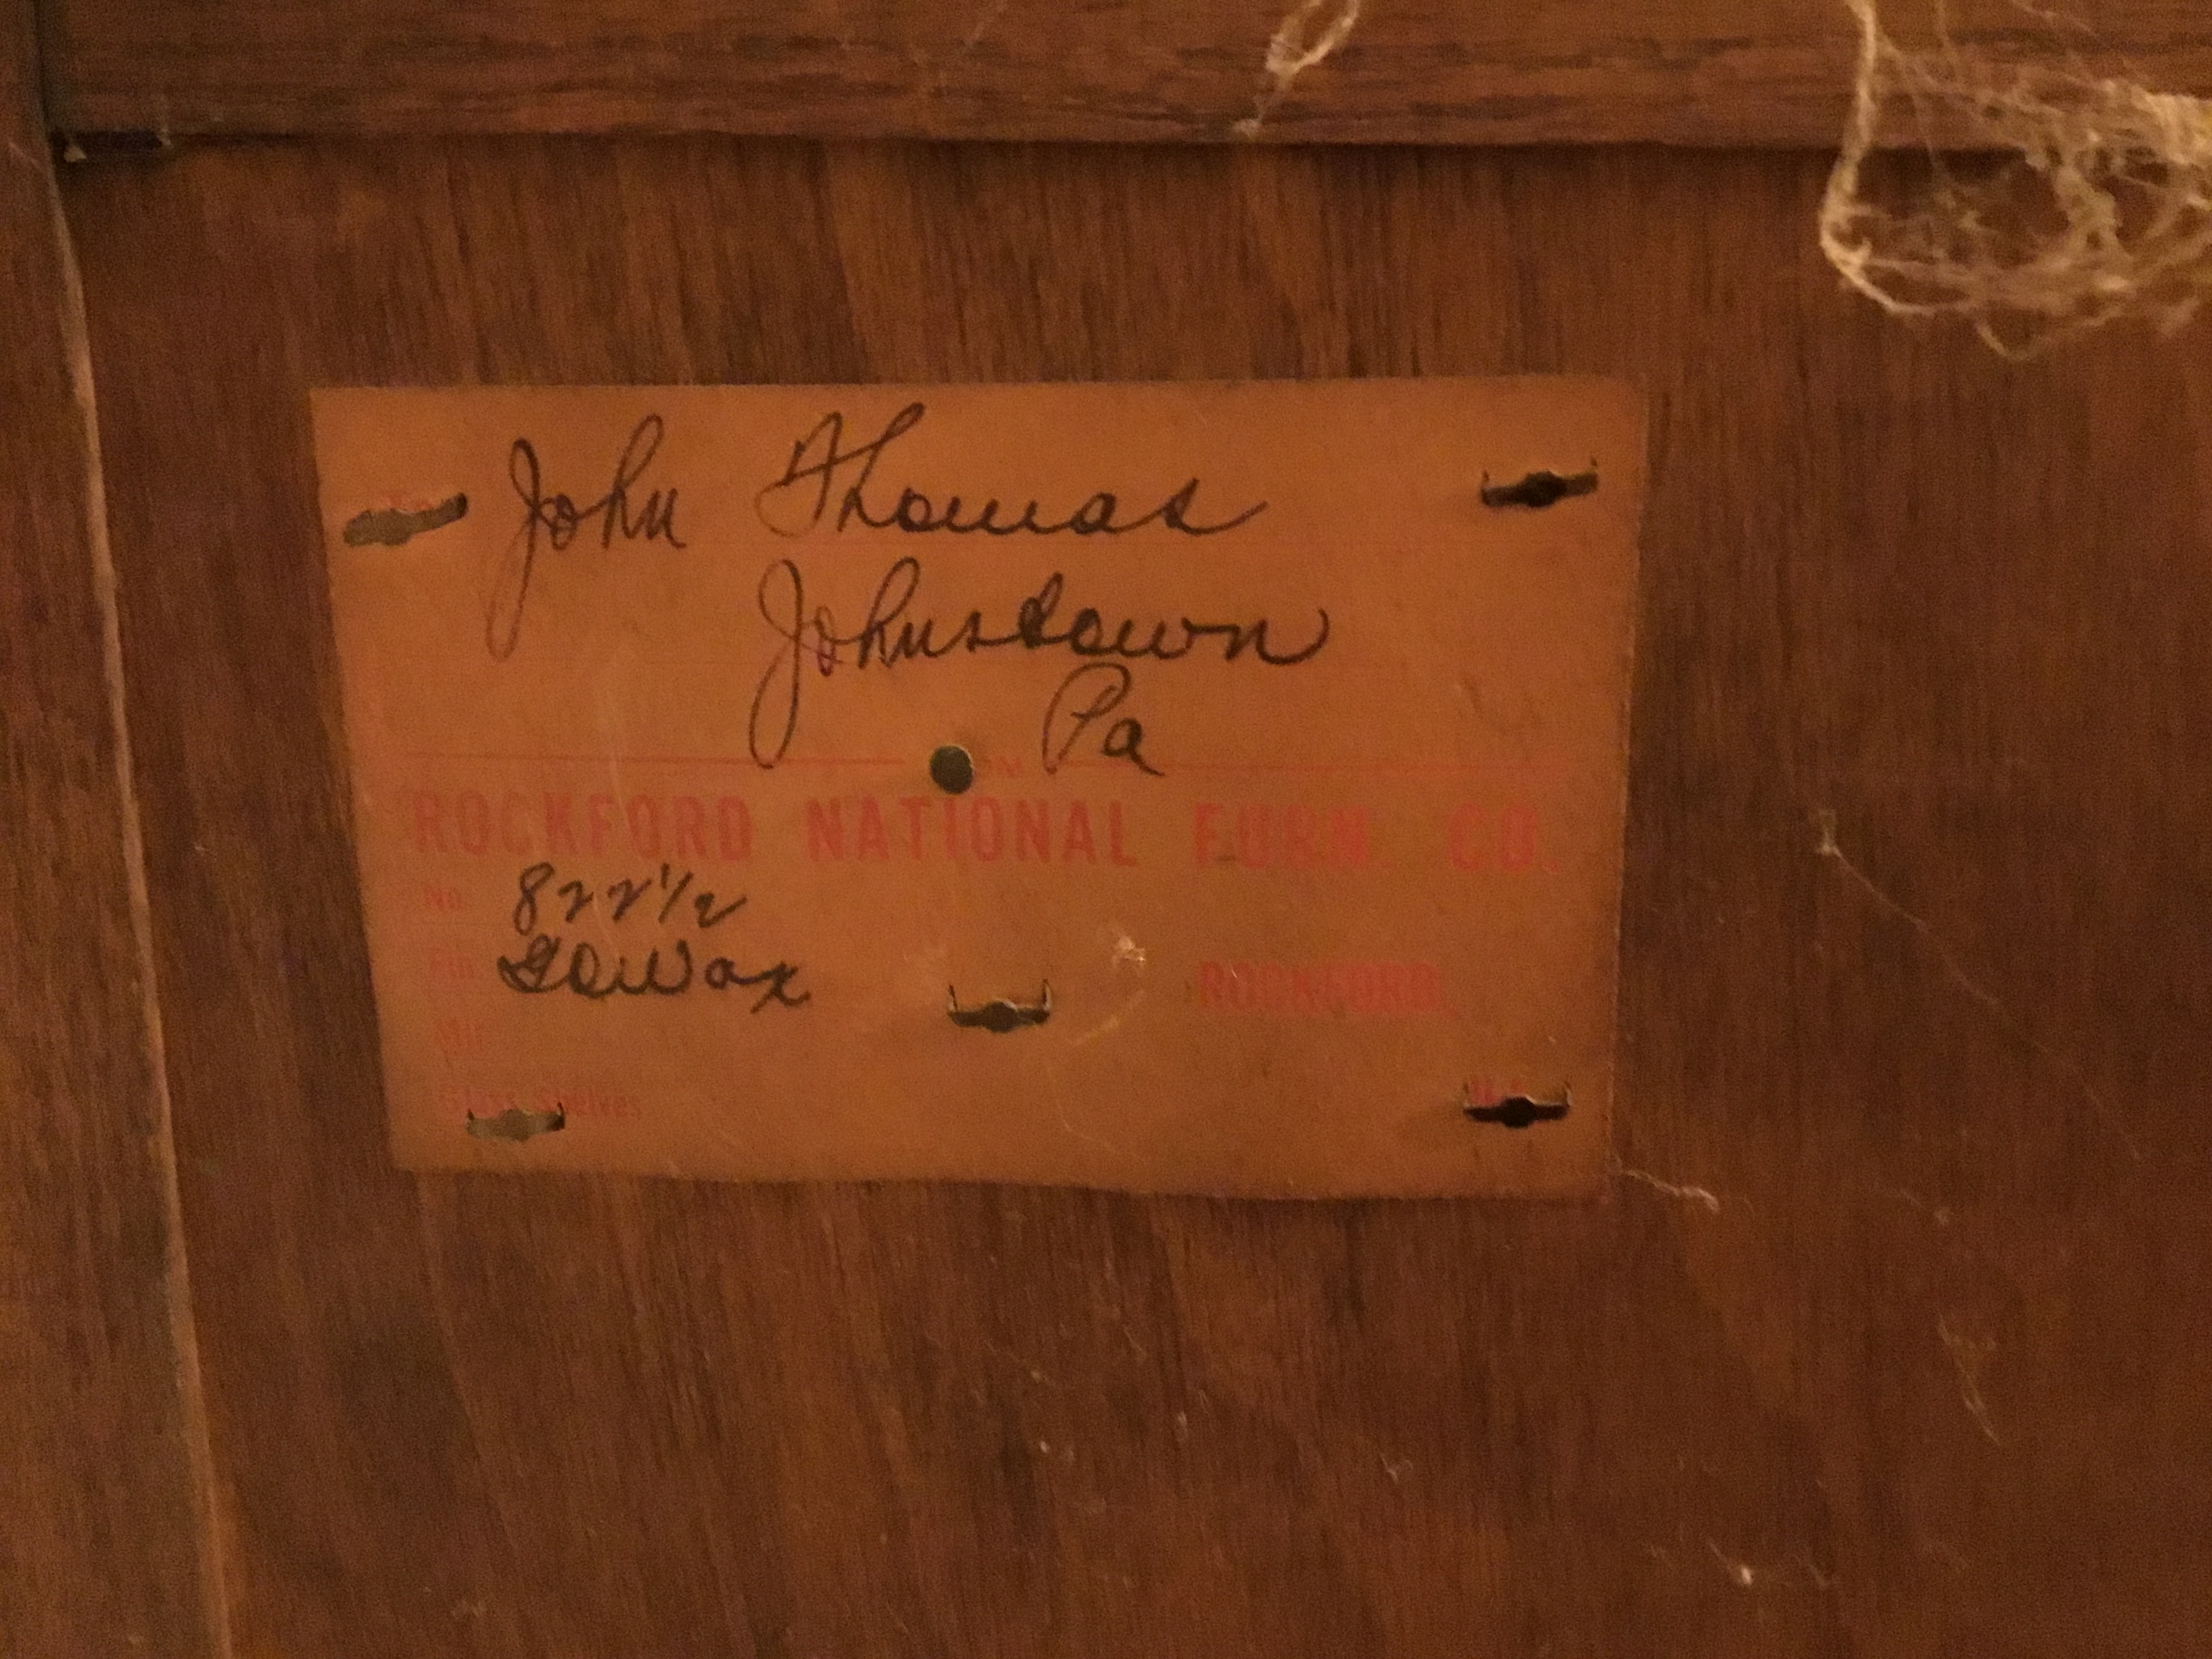 John Thomas
Johnstown
Pa
ROCKFORD NATIONAL FURN. CO.
No. 822 1/2
Fin.
ROCKFORD
Mir.
Glass Shelves